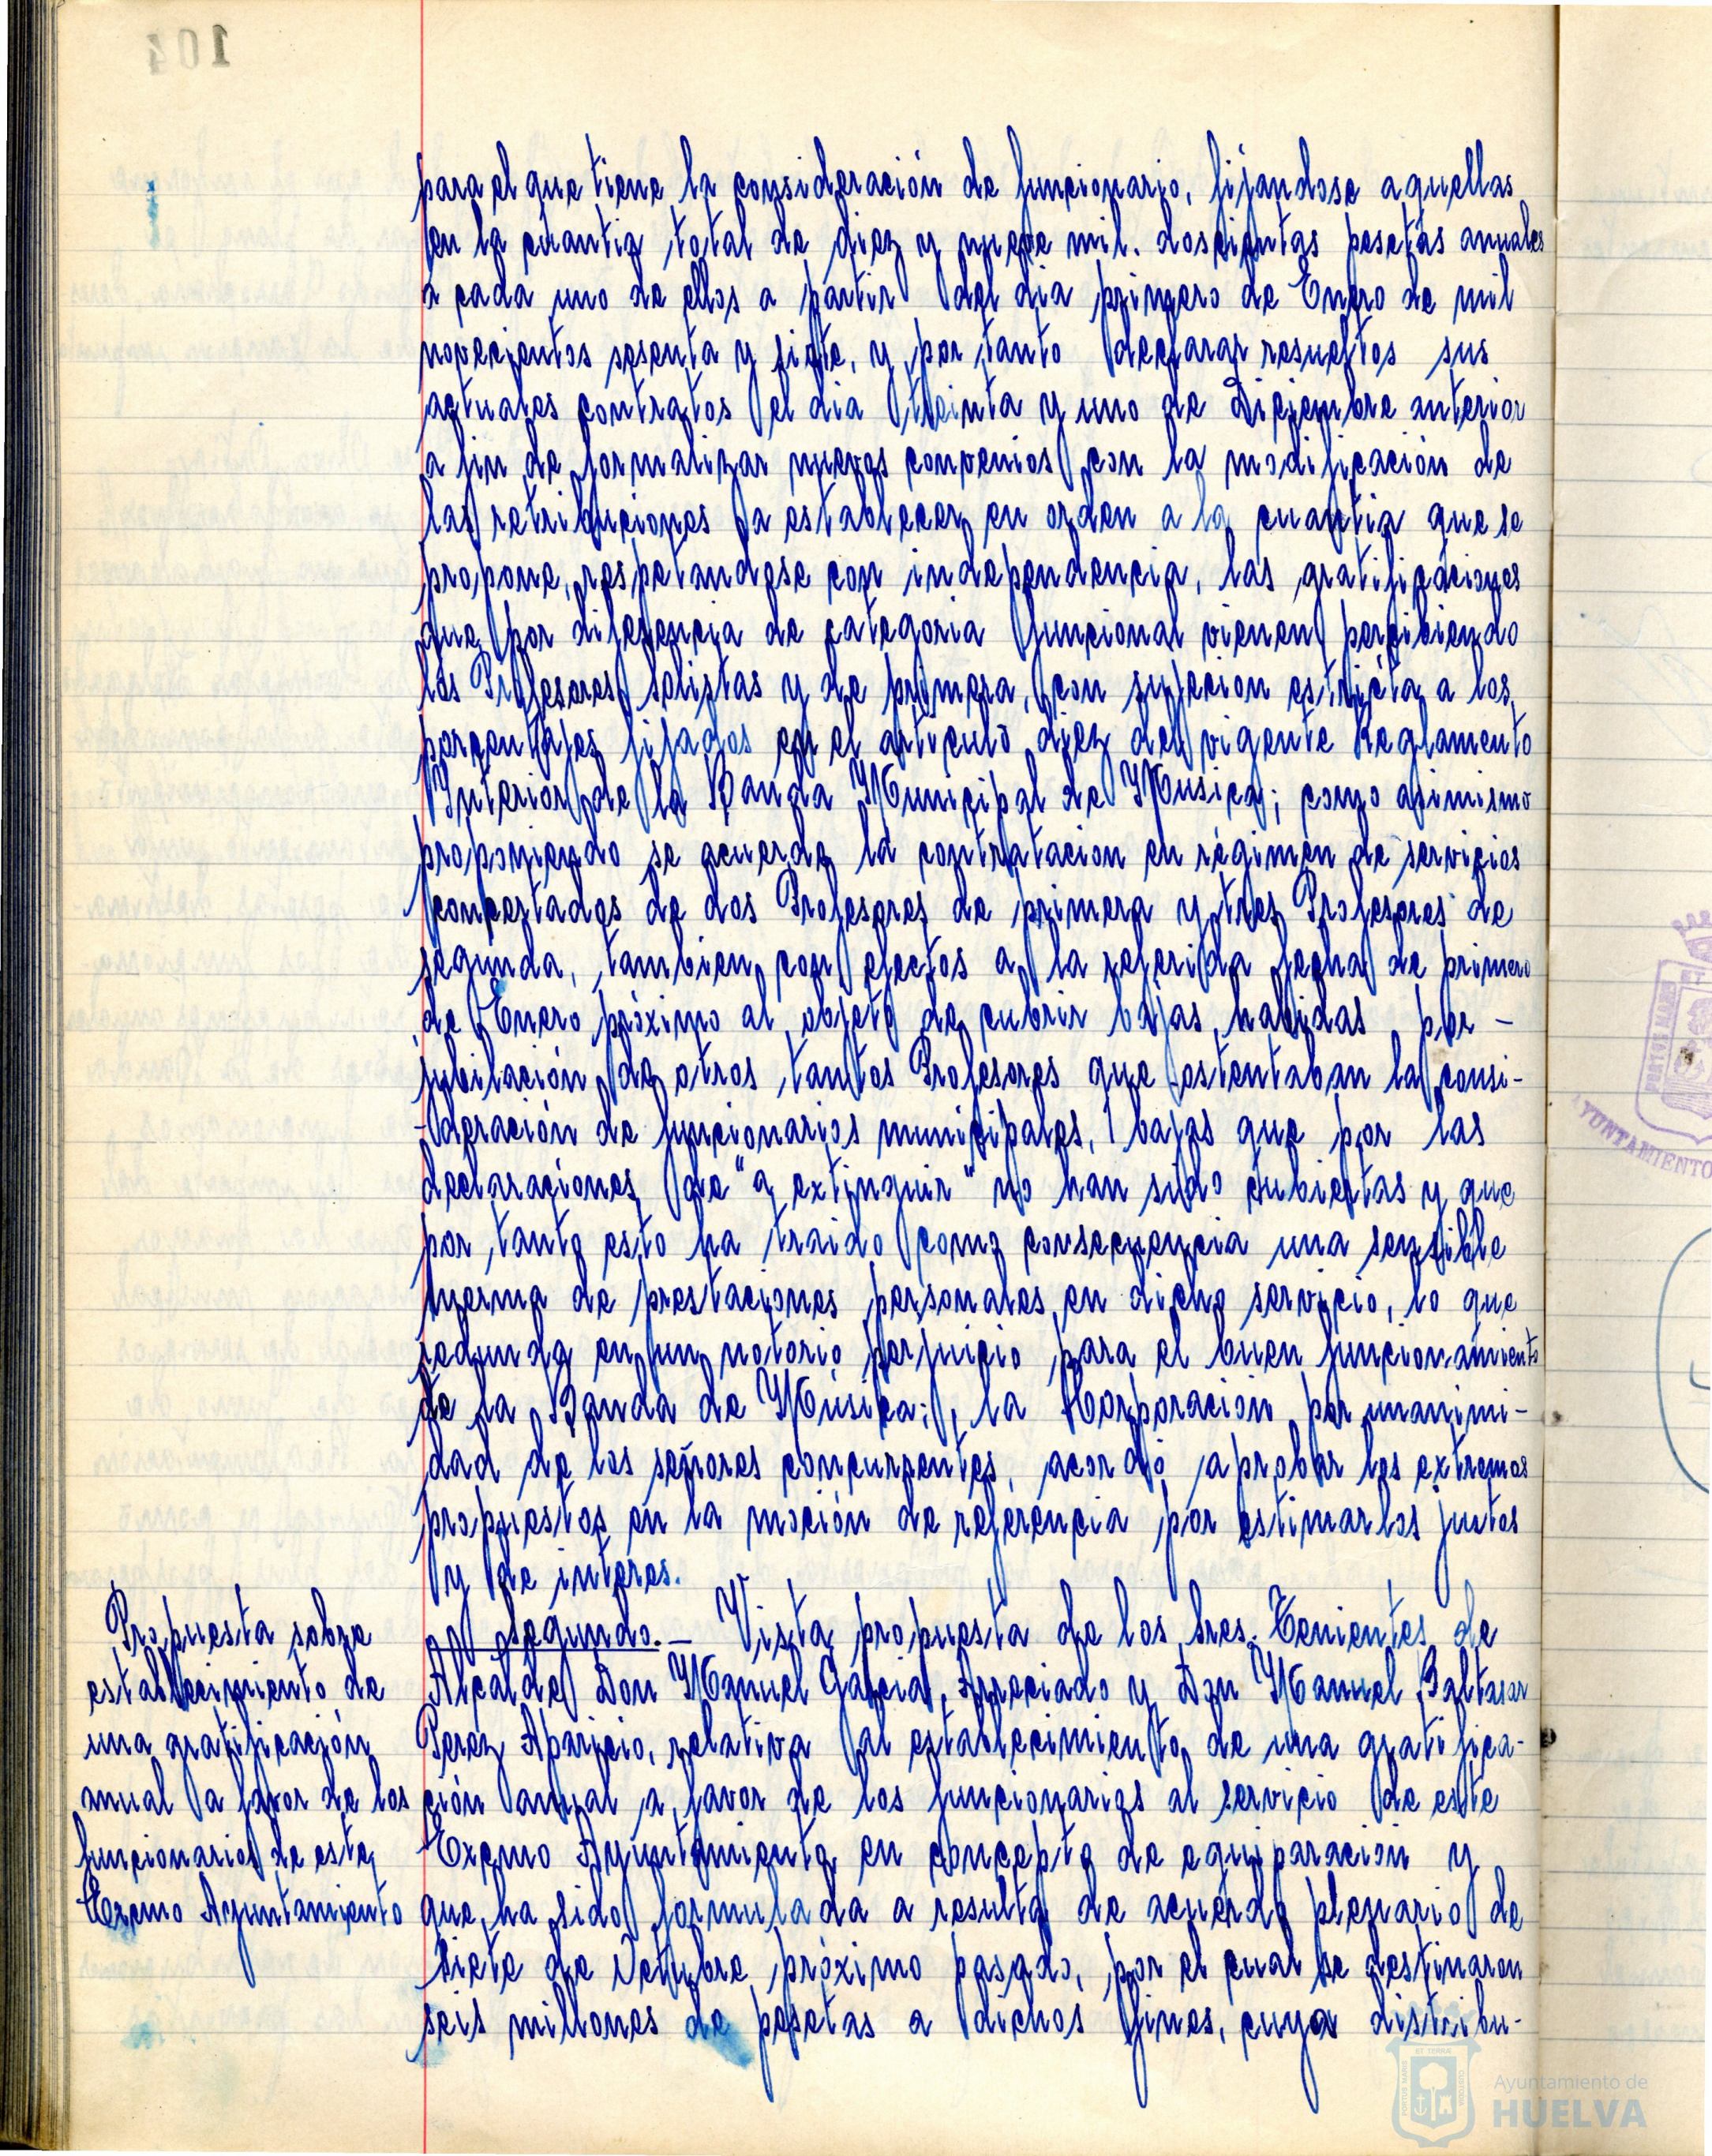 104
para el que tiene la consideración de funcionario, fijandose aquellas
en la cuantia total de diez y nueve mil doscientas pesetas anuales
a cada uno de ellos a partir del dia primero de Enero de mil
novecientos sesenta y siete, y por tanto declarar resueltos sus
actuales contratos el dia treinta y uno de Diciembre anterior
a fin de formalizar nuevos convenios con la modificación de
las retribuciones a establecer en orden a la cuantia que se
propone, respetandose con independencia, las gratificaciones
que por diferencia de categoria funcional vienen percibiendo
los Profesores solistas y de primera, con sujecion estricta a los
porcentajes fijados en el articulo diez del vigente Reglamento
Interior de la Banda Municipal de Musica; como asimismo
proponiendo se acuerde la contratacion en régimen de servicios
concertados de dos Profesores de primera y tres Profesores de
segunda, tambien con efectos a la referida fecha de primero
de Enero próximo al objeto de cubrir bajas habidas por -
jubilación de otros tantos Profesores que ostentaban la consi-
deración de funcionarios municipales, bajas que por las
declaraciones de "a extinguir" no han sido cubiertas y que
por tanto esto ha traido como consecuencia una sensible
merma de prestaciones personales en dicho servicio, lo que
redunda en un notorio perjuicio para el buen funcionamiento
de la Banda de Música; la Corporación por unanimi-
dad de los señores concurrentes, acordó aprobar los extremos
propuestos en la moción de referencia por estimarlos justos
y de interes.
Propuesta sobre
establecimiento de
una gratificación
anual a favor de los
funcionarios de este
Excmo Ayuntamiento
Segundo. - Vista propuesta de los Sres. Tenientes de
Alcalde Don Manuel Garcia Arreciado y Don Manuel Baltasar
Perez Aparicio, relativa al establecimiento de una gratifica-
ción anual a favor de los funcionarios al servicio de este
Excmo Ayuntamiento en concepto de equiparación y
que ha sido formulada a resulta de acuerdo plenario de
siete de Octubre próximo pasado, por el cual se destinaron
seis millones de pesetas a dichos fines, cuya distribu-
PORTUS MARIS
AYUNTAMIENTO
Ayuntamiento de
HUELVA